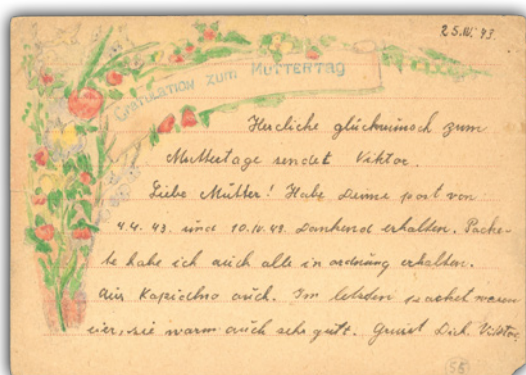 25.IV.43.
Gratulation zum Muttertag
Herzliche glückwunsch zum
Muttertage sendet Viktor.
Liebe Mutter! Habe Deine post von
4.4.43. und 10.IV.43. Dankend erhalten. Packe-
te habe ich auch alle in ordnung erhalten.
Aus auch. Im letzten packet waren
eier, sie warm auch sehr gutt. Grüsst Dich Viktor.
55